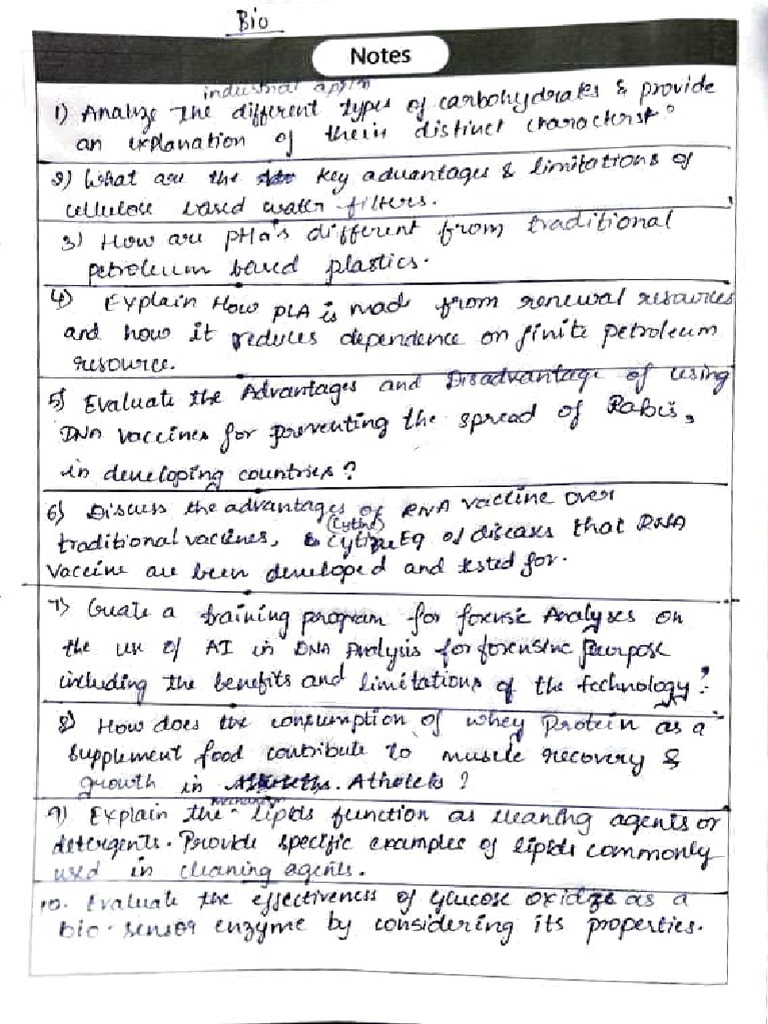 Bio
Notes
industrial
1) Analize The different types of carbohydrates & provide
an explanation of their distinct
2) What are the key advantages & limitations of
cellulose based water filters.
3) How are PHA's different from traditional
petroleum based plastics.
4) Explain How PLA is made from renewal resources
and how it reduces dependence on finite petroleum
resource.
5) Evaluate the Advantages and Disadvantage of using
DNA vaccines for preventing the spread of Rabis,
in developing countries?
6) Discuss the advantages of RNA vaccine over
traditional vaccines, & Eg of diseases that RNA
Vaccine are been developed and tested for.
7) Create a training program for forensic Analyses on
the use of AI in DNA Analysis for forensinc purpose
including the benefits and limitations of the technology?
8) How does the consumption of whey Protein as a
supplement food contribute to muscle recovery &
growth in Atheletes?
mechanism
9) Explain the lipids function as cleaning agents or
detergents. Provide specific examples of lipids commonly
used in cleaning agents.
10. Evaluate the effectiveness of Glucose oxidze as a
bio-sensor enzyme by considering its properties.